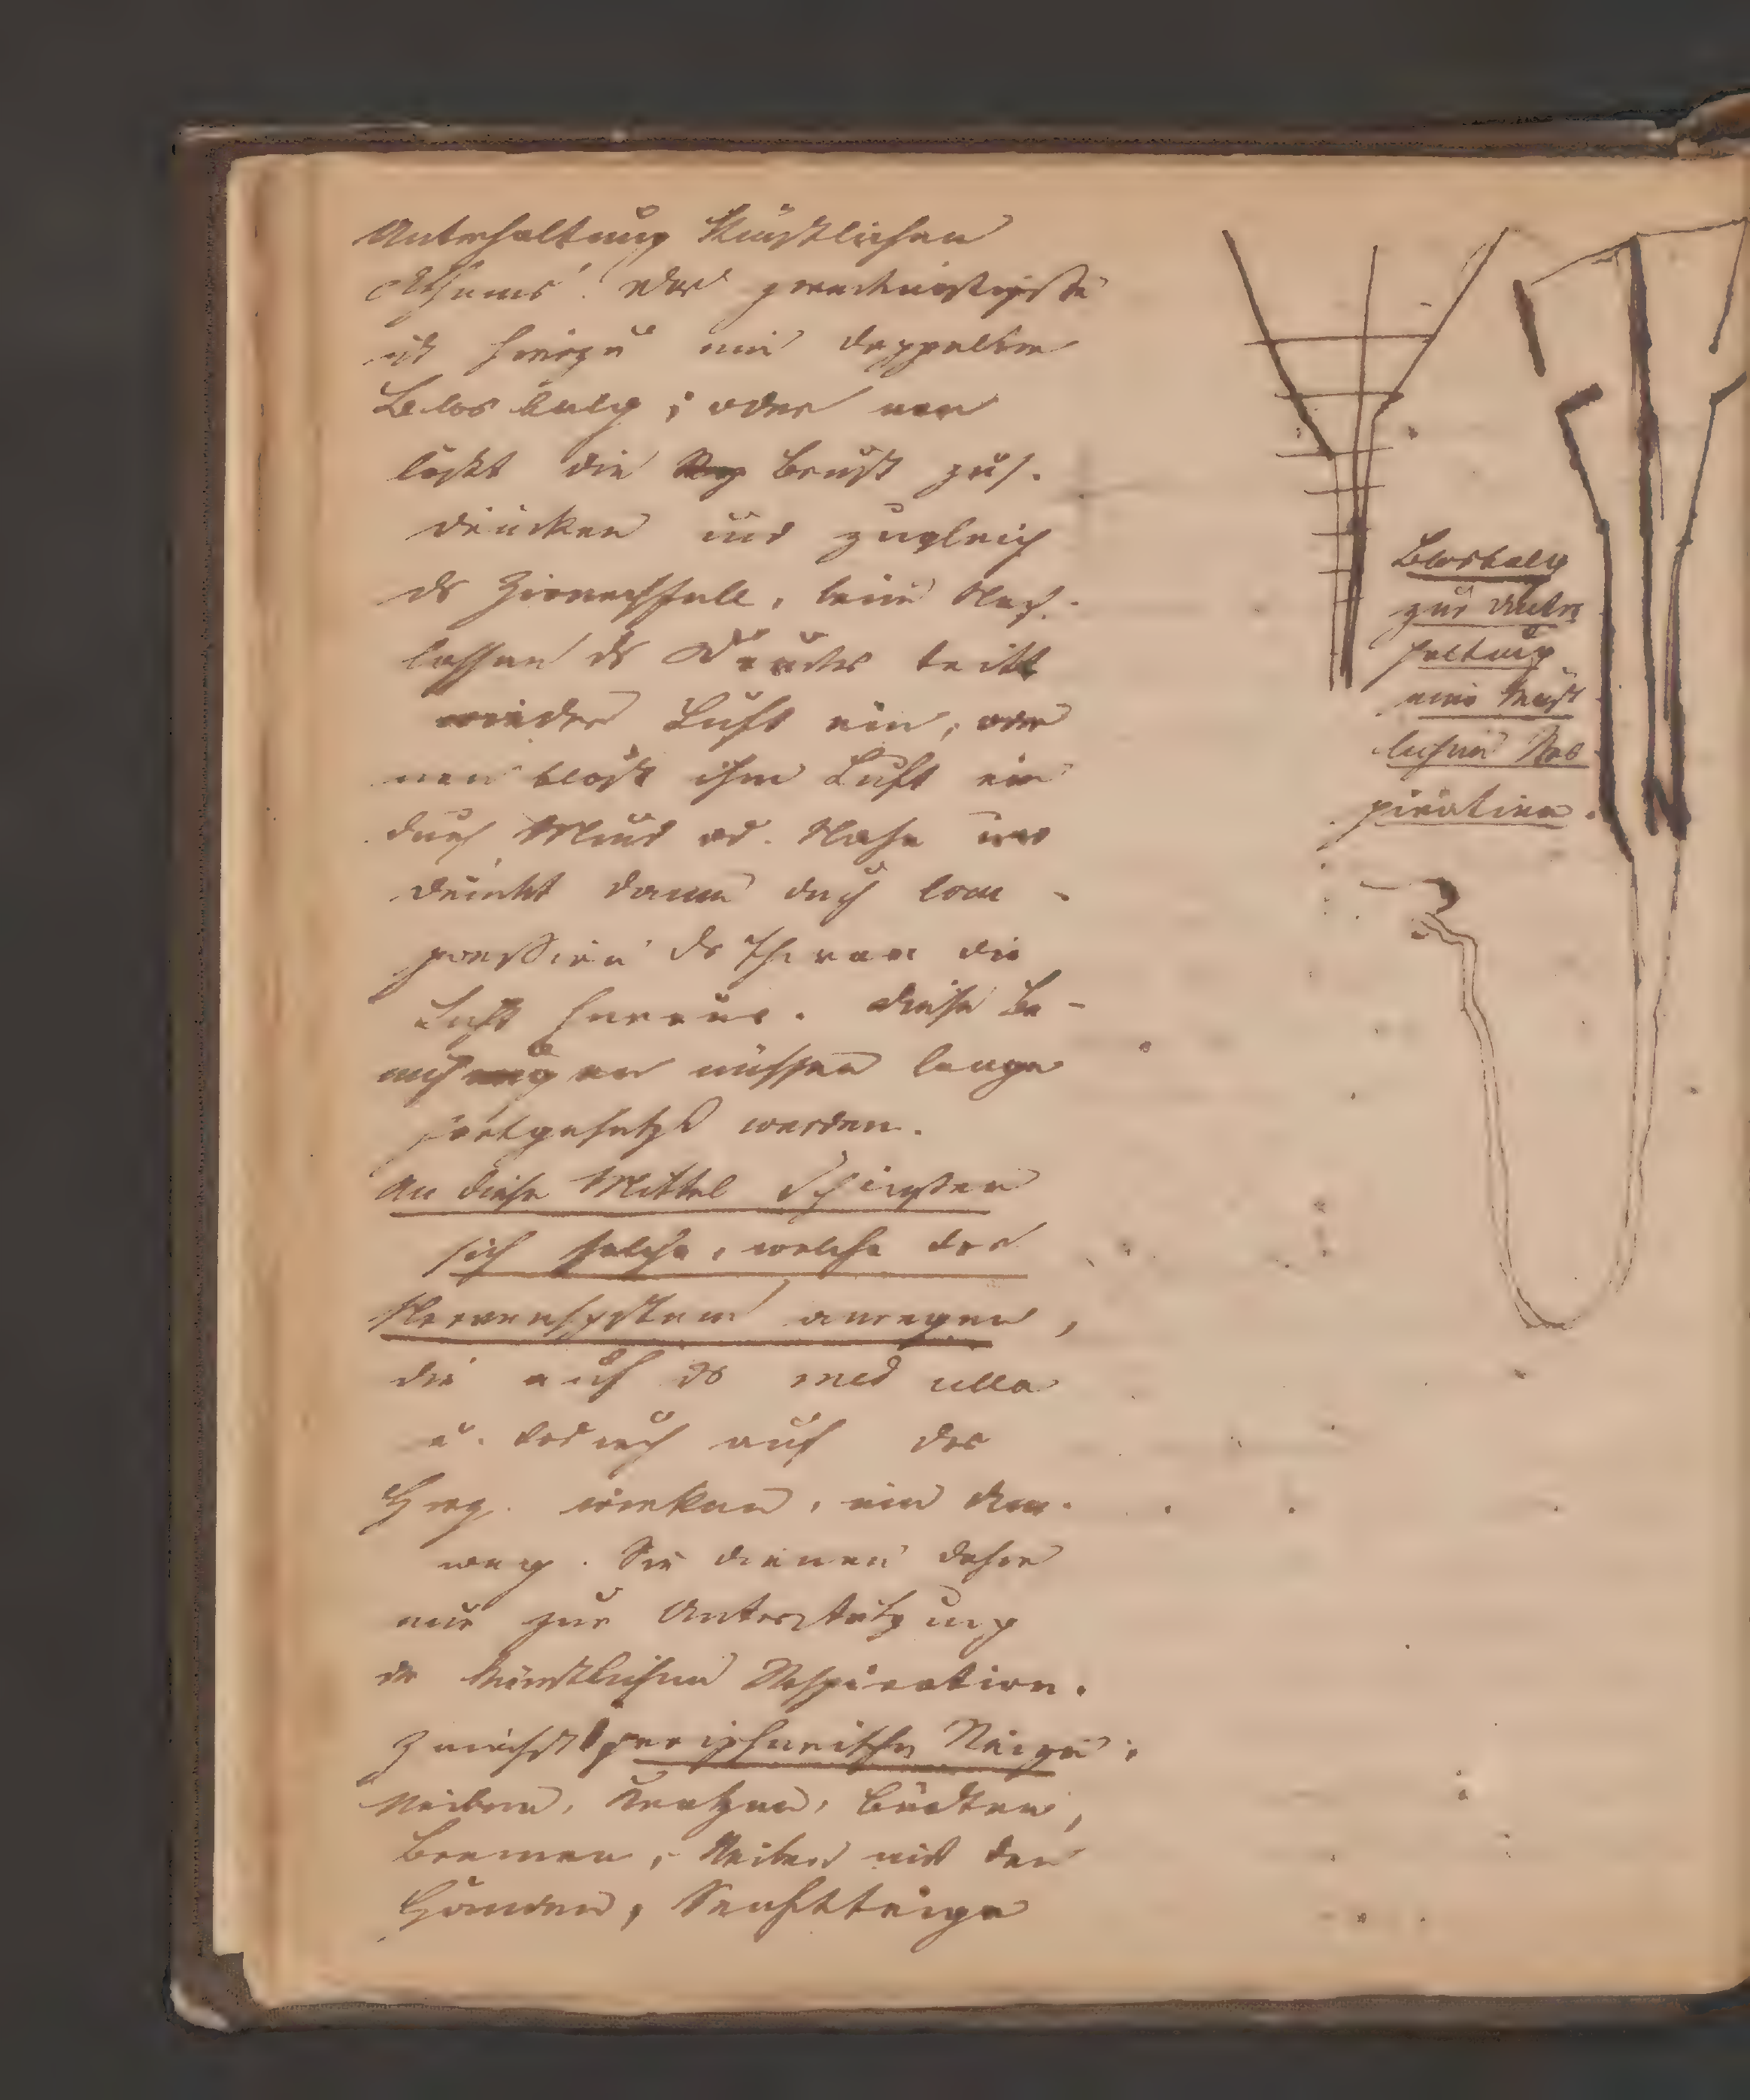 Unterhaltung künstlichen
Athems. Das zweckmässigste
ist hierzu ein doppelter
Blasbalg; oder man
lässt die Brust zus.
drücken und zugleich
ds Zwerchfell, beim Nach-
lassen ds Druckes tritt
wieder Luft ein, oder
man bläst ihm Luft ein
durch Mund od. Nase und
drückt dann durch Com-
pression ds Thorax die
Luft heraus. Diese Be-
mühungen müssen lange
fortgesetzt werden.
An diese Mittel schliessen
sich solche, welche das
Nervensystem anregen,
die auf ds medulla
u. dadurch auf das
Herz wirken,
Sie dienen daher
nur zur Unterstützung
der künstlichen Respiration.
Zunächst peripherische Reize:
Reiben, Kratzen, Bürsten,
Brennen, Reiben mit den
Händen, Senfteige
Blasbalg
zur Unter
haltung
einer künst
lichen Res
piration.